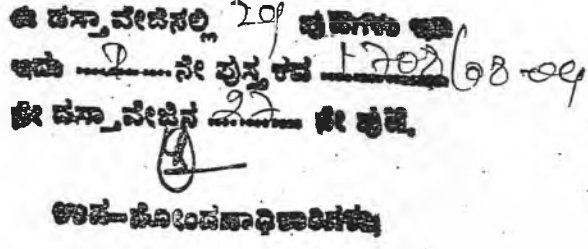 ಈ ದಸ್ತಾವೇಜಿನಲ್ಲಿ 29 ಪುಟಗಳು ಇವೆ
ಇದು 1 ನೇ ಪುಸ್ತಕದ 1708/08-04
ನೇ ದಸ್ತಾವೇಜಿನ 27 ನೇ ಪುಟ
ಉಪ-ನೋಂದಣಾಧಿಕಾರಿಗಳು